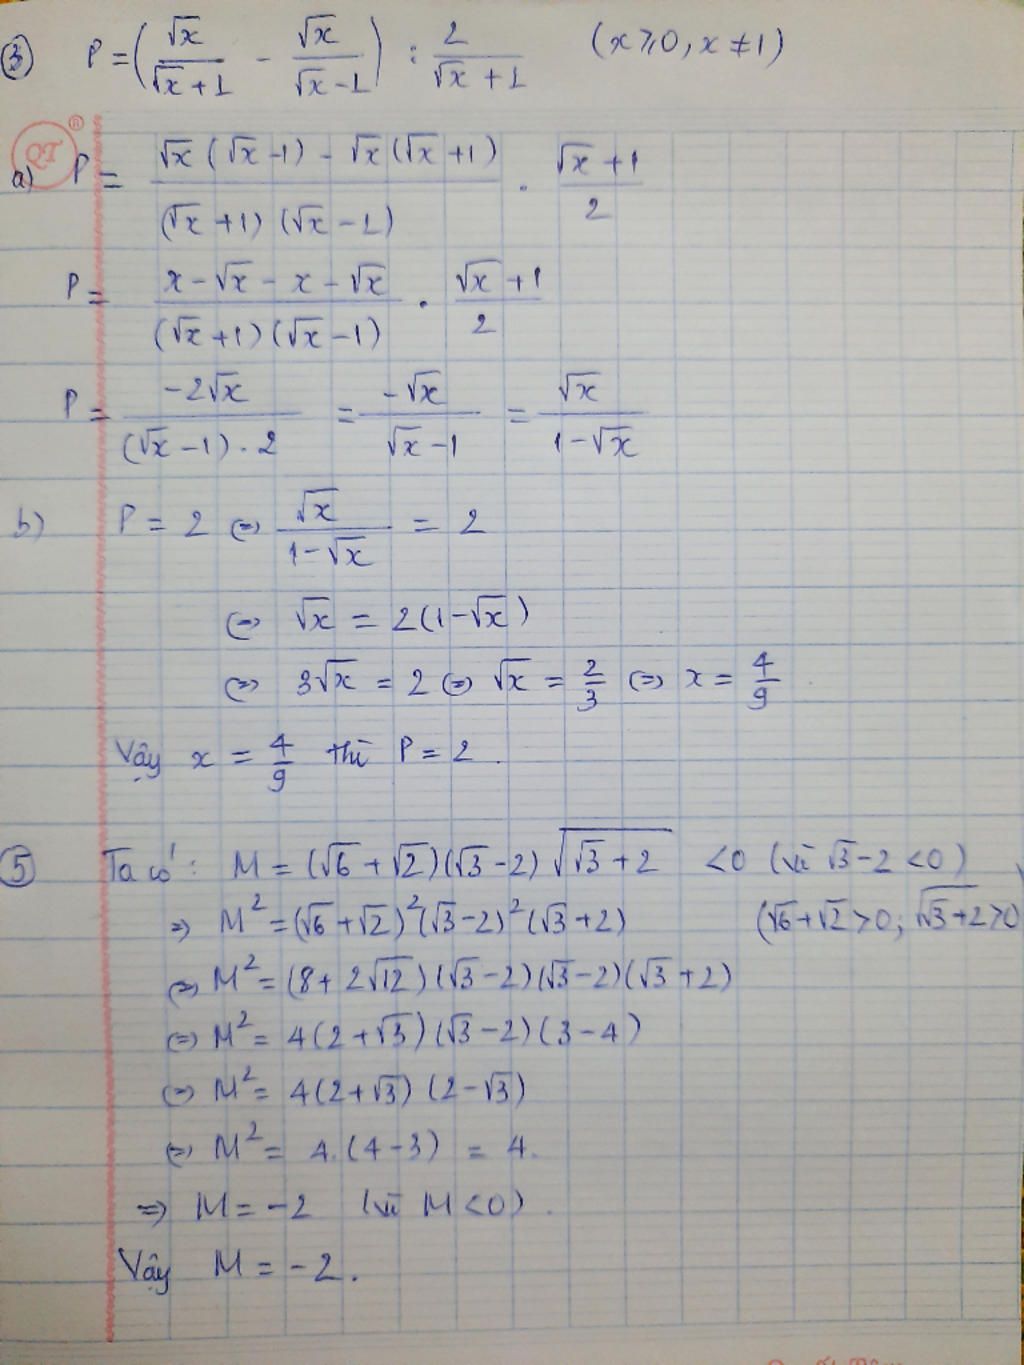 ③ P = (√x/(√x+1) - √x/(√x-1)) : 2/(√x+1) (x⩾0, x≠1)
QT ®
a) P = (√x(√x-1) - √x(√x+1))/((√x+1)(√x-1)) . (√x+1)/2
P = (x-√x-x-√x)/((√x+1)(√x-1)) . (√x+1)/2
P = -2√x/((√x-1).2) = -√x/(√x-1) = √x/(1-√x)
b) P = 2 ⇔ √x/(1-√x) = 2
⇔ √x = 2(1-√x)
⇔ 3√x = 2 ⇔ √x = 2/3 ⇔ x = 4/9.
Vậy x = 4/9 thì P = 2.
⑤ Ta có: M = (√6+√2)(√3-2)√(√3+2) <0 (vì √3-2<0)
⇒ M² = (√6+√2)²(√3-2)²(√3+2) (√6+√2>0; √(√3+2)>0
⇔ M² = (8+2√12)(√3-2)(√3-2)(√3+2)
⇔ M² = 4(2+√3)(√3-2)(3-4)
⇔ M² = 4(2+√3)(2-√3)
⇔ M² = 4.(4-3) = 4.
⇒ M = -2 (vì M<0).
Vậy M = -2.